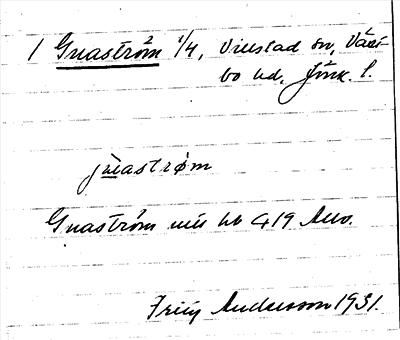 1 Gnaström 1/4, Villstad sn, Väst-
bo hd, Jönk. l.
jnastrøm
Gnaström hb 419 Avs.
Andersson 1931.